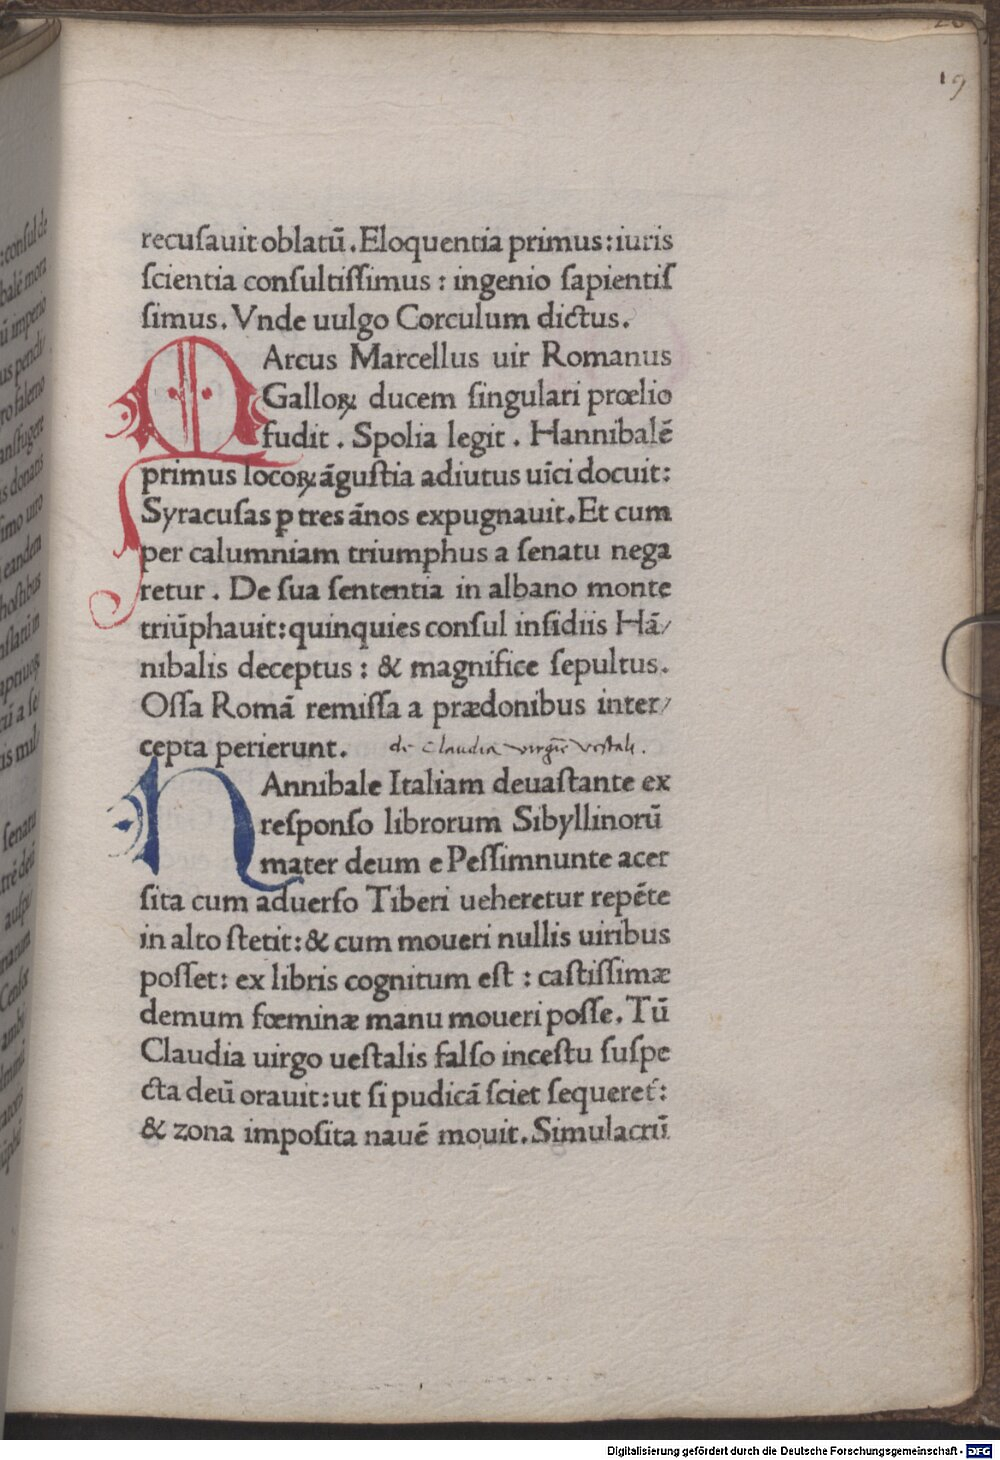 19
recuſauit oblatū. Eloquentia primus: iuris
ſcientia conſultiſſimus : ingenio ſapientiſ
ſimus. Vnde uulgo Corculum dictus.
MArcus Marcellus uir Romanus
Galloꝝ ducem ſingulari prœlio
fudit . Spolia legit . Hannibalē
primus locoꝝ āguſtia adiutus uīci docuit:
Syracuſas ꝑ tres ānos expugnauit. Et cum
per calumniam triumphus a ſenatu nega
retur . De ſua ſententia in albano monte
triūphauit: quinquies conſul inſidiis Hā/
nibalis deceptus : & magnifice ſepultus.
Oſſa Romā remiſſa a prædonibus inter/
cepta perierunt. de Claudia virgīe vestali.
HAnnibale Italiam deuaſtante ex
reſponſo librorum Sibyllinorū
mater deum e Peſſimnunte acer
ſita cum aduerſo Tiberi ueheretur repēte
in alto ſtetit: & cum moueri nullis uiribus
poſſet: ex libris cognitum eſt : caſtiſſimæ
demum fœminæ manu moueri poſſe. Tū
Claudia uirgo ueſtalis falſo inceſtu ſuſpe
cta deū orauit: ut ſi pudicā ſciet ſequeret̄:
& zona impoſita nauē mouit. Simulacrū
Digitalisierung gefördert durch die Deutsche Forschungsgemeinschaft - DFG